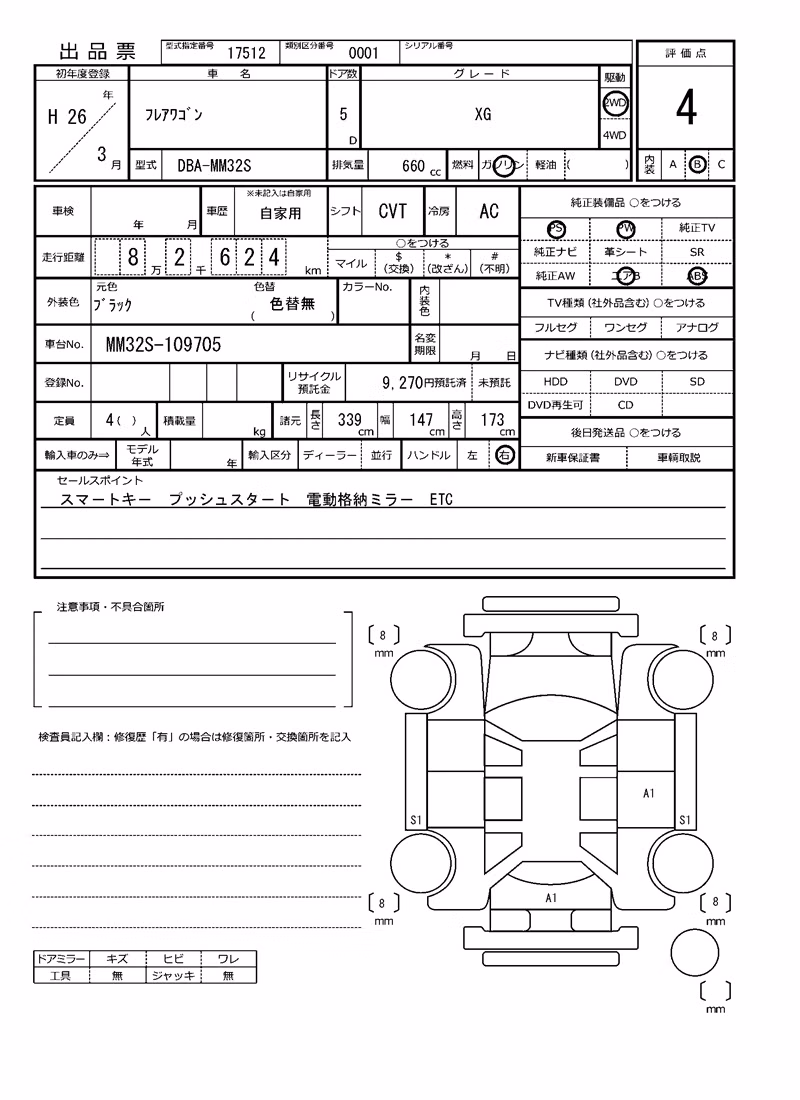 出品票 型式指定番号 17512 類別区分番号 0001 シリアル番号
評価点
初年度登録 車名 ドア数 グレード 駆動
H 26 年 3 月 フレアワゴン 5 D XG 2WD 4WD
4
型式 DBA-MM32S 排気量 660 cc 燃料 ガソリン 軽油 ( )
内装 A B C
車検 年 月 車歴 ※未記入は自家用 自家用 シフト CVT 冷房 AC
純正装備品 ○をつける
PS PW 純正TV
純正ナビ 革シート SR
純正AW エアB ABS
走行距離 8 万 2 千 6 2 4 km
○をつける
マイル $ (交換) * (改ざん) # (不明)
外装色 元色 ブラック 色替 ( 色替無 ) カラーNo. 内装色
TV種類 (社外品含む) ○をつける
フルセグ ワンセグ アナログ
車台No. MM32S-109705 名変期限 月 日
ナビ種類 (社外品含む) ○をつける
HDD DVD SD
DVD再生可 CD
登録No. リサイクル預託金 9,270円預託済 未預託
定員 4( ) 人 積載量 kg 諸元 長さ 339 cm 幅 147 cm 高さ 173 cm
後日発送品 ○をつける
新車保証書 車輌取説
輸入車のみ⇒ モデル年式 年 輸入区分 ディーラー 並行 ハンドル 左 右
セールスポイント
スマートキー プッシュスタート 電動格納ミラー ETC
注意事項・不具合箇所
[8] mm
[8] mm
検査員記入欄：修復歴「有」の場合は修復箇所・交換箇所を記入
A1
S1 S1
A1
[8] mm
[8] mm
ドアミラー キズ ヒビ ワレ
工具 無 ジャッキ 無
[ ] mm